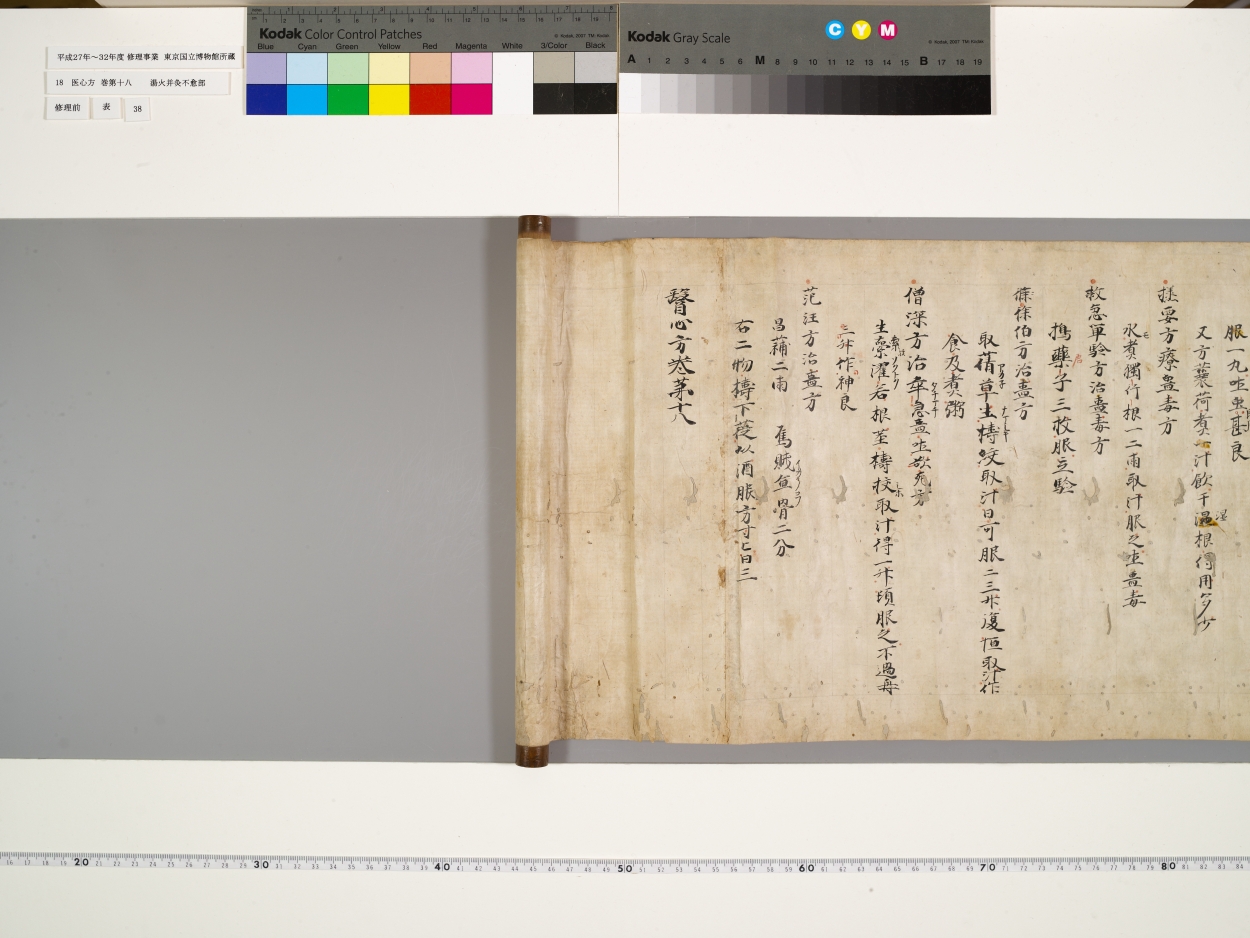 平成27年～32年度 修理事業 東京国立博物館所蔵
18 医心方 巻第十八 湯火并灸不愈部
修理前 表 38
Kodak Color Control Patches
© Kodak, 2007 TM: Kodak
Blue Cyan Green Yellow Red Magenta White 3/Color Black
Kodak Gray Scale
C Y M
© Kodak, 2007 TM: Kodak
A 1 2 3 4 5 6 M 8 9 10 11 12 13 14 15 B 17 18 19
服一丸吐虫甚良
又方蘘荷煮汁飲干濕根得用多少
極要方療蠱毒方
水煮獨行根一二兩取汁服之吐蠱毒
救急單驗方治蠱毒方
搗藥子三枚服立驗
徐伯方治蠱方
取蒨草生擣絞取汁日可服二三升復恒取汁作
食及煮粥
僧深方治卒急蠱吐欲死方
生索濯石根莖擣挍取汁得一升頃服之不過再
三升作神良
范汪方治蠱方
昌蒲二兩 烏賊魚骨二分
右二物擣下簁以酒服方寸匕日三
醫心方卷第十八
20 30 40 50 60 70 80